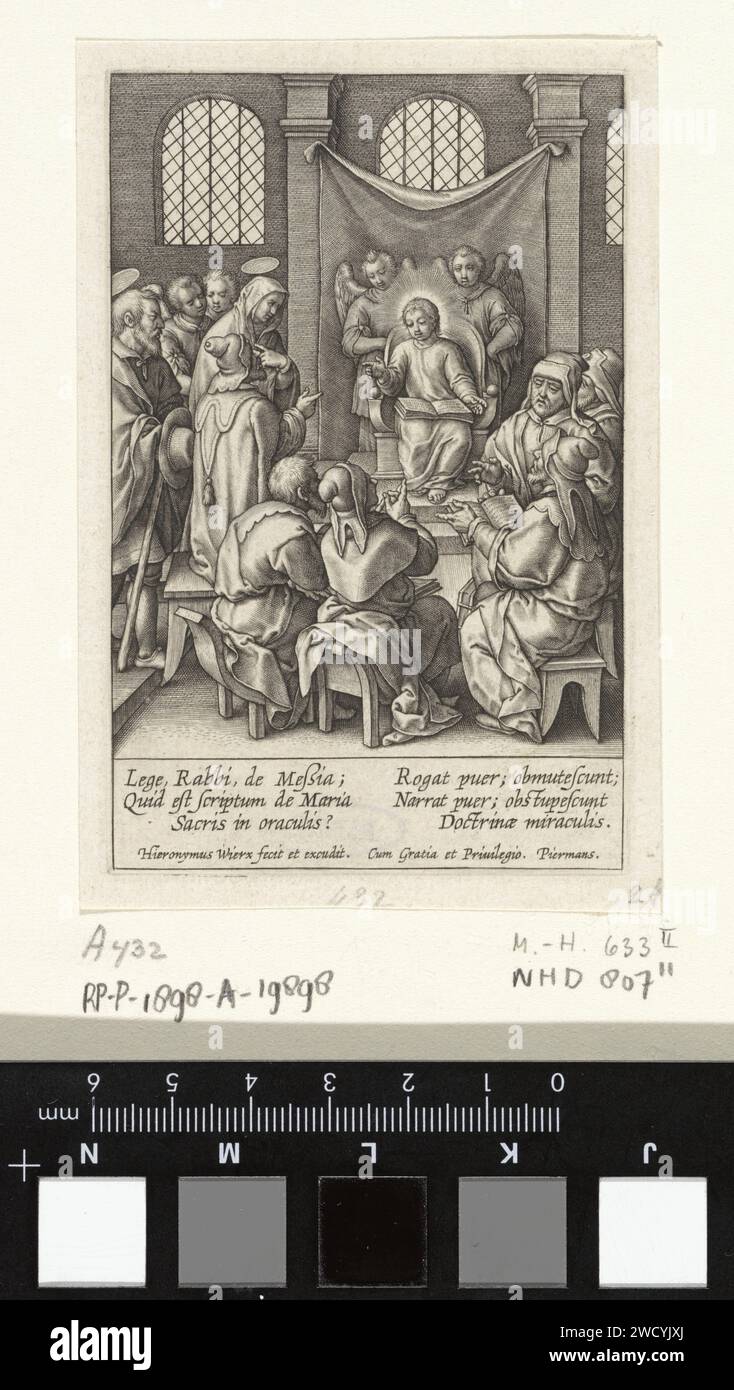 Lege, Rabbi, de Meſsia;
Quid eſt ſcriptum de Maria
Sacris in oraculis?
Rogat puer; obmuteſcunt;
Narrat puer; obstupeſcunt
Doctrinæ miraculis.
Hieronymus Wierx fecit et excudit. Cum Gratia et Priuilegio. Piermans.
432
A 432
RP-P-1898-A-19898
M.-H. 633 II
NHD 807 II
mm 6 5 4 3 2 1 0
N M L K J
alamy
Image ID: 2WCYJXJ
www.alamy.com